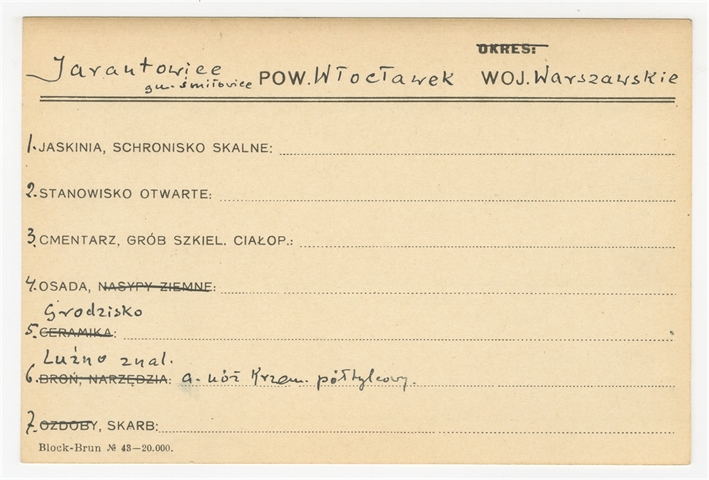 OKRES:
Jarantowice POW. Włocławek WOJ. Warszawskie
gm. Śmiłowice
1. JASKINIA, SCHRONISKO SKALNE:
2. STANOWISKO OTWARTE:
3. CMENTARZ, GRÓB SZKIEL. CIAŁOP.:
4. OSADA, NASYPY ZIEMNE:
Grodzisko
5. CERAMIKA:
Luźno znal.
6. BROŃ, NARZĘDZIA: a. nóż krzem. półtylcowy.
7. OZDOBY, SKARB:
Block-Brun № 43—20.000.